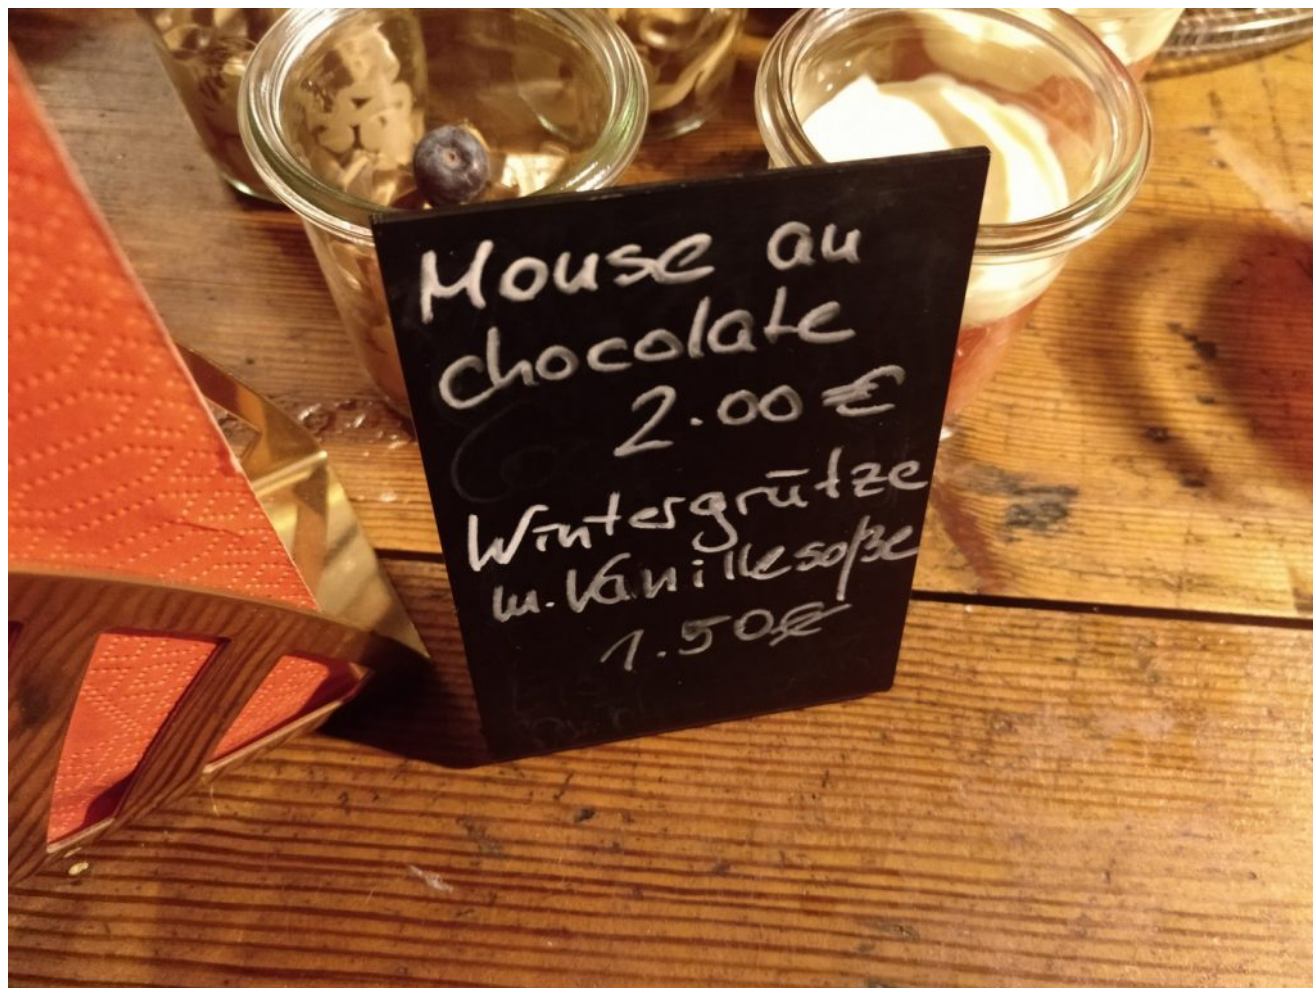 Mouse au
chocolate
2.00 €
Wintergrütze
m. Vanillesoße
1.50€